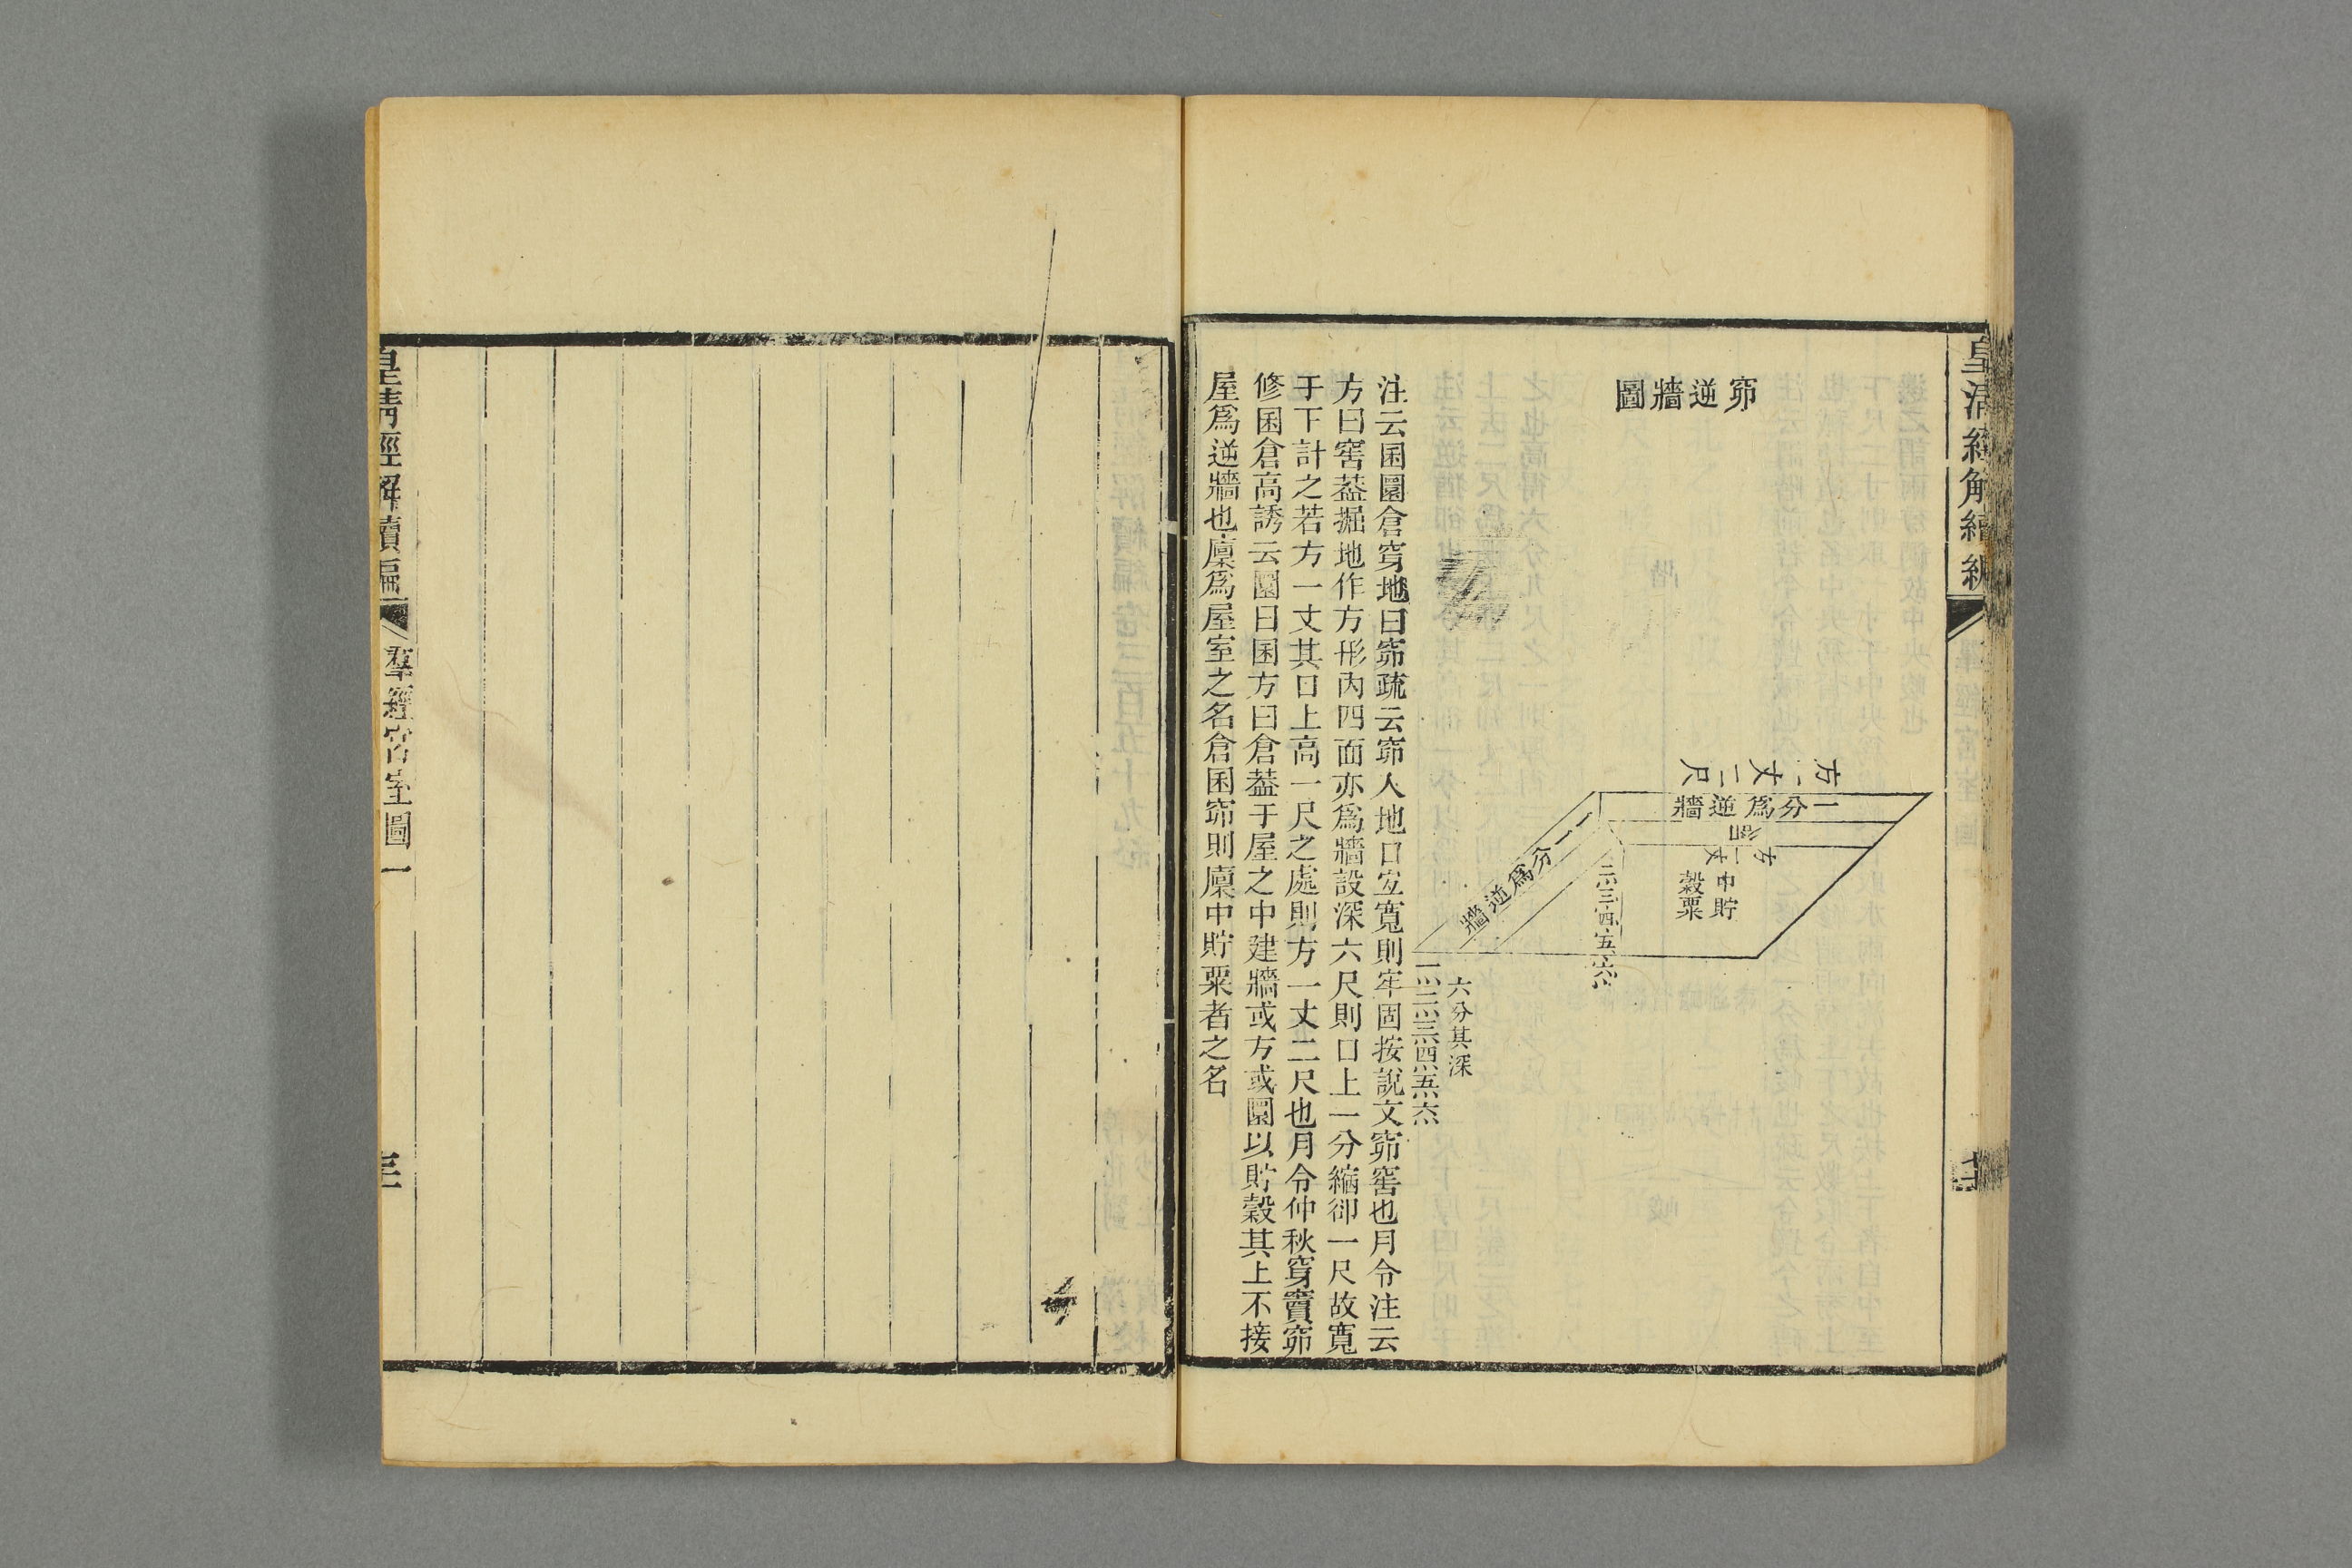 皇清經解續編
窌逆牆圖
方一丈二尺
一分爲逆牆
方一丈
中貯
穀粟
一分爲逆牆
二三四五六
六分其深
一二三四五六
注云囷圜倉穿地曰窌疏云窌人地口宜寬則牢固按說文窌窖也月令注云
方曰窖葢掘地作方形內四面亦爲牆設深六尺則口上一分縮卻一尺故寬
于下計之若方一丈其口上高一尺之處則方一丈二尺也月令仲秋穿竇窌
修囷倉高誘云圜曰囷方曰倉葢于屋之中建牆或方或圜以貯穀其上不接
屋爲逆牆也廩爲屋室之名倉囷窌則廩中貯粟者之名
皇清經解續編
羣經宮室圖一